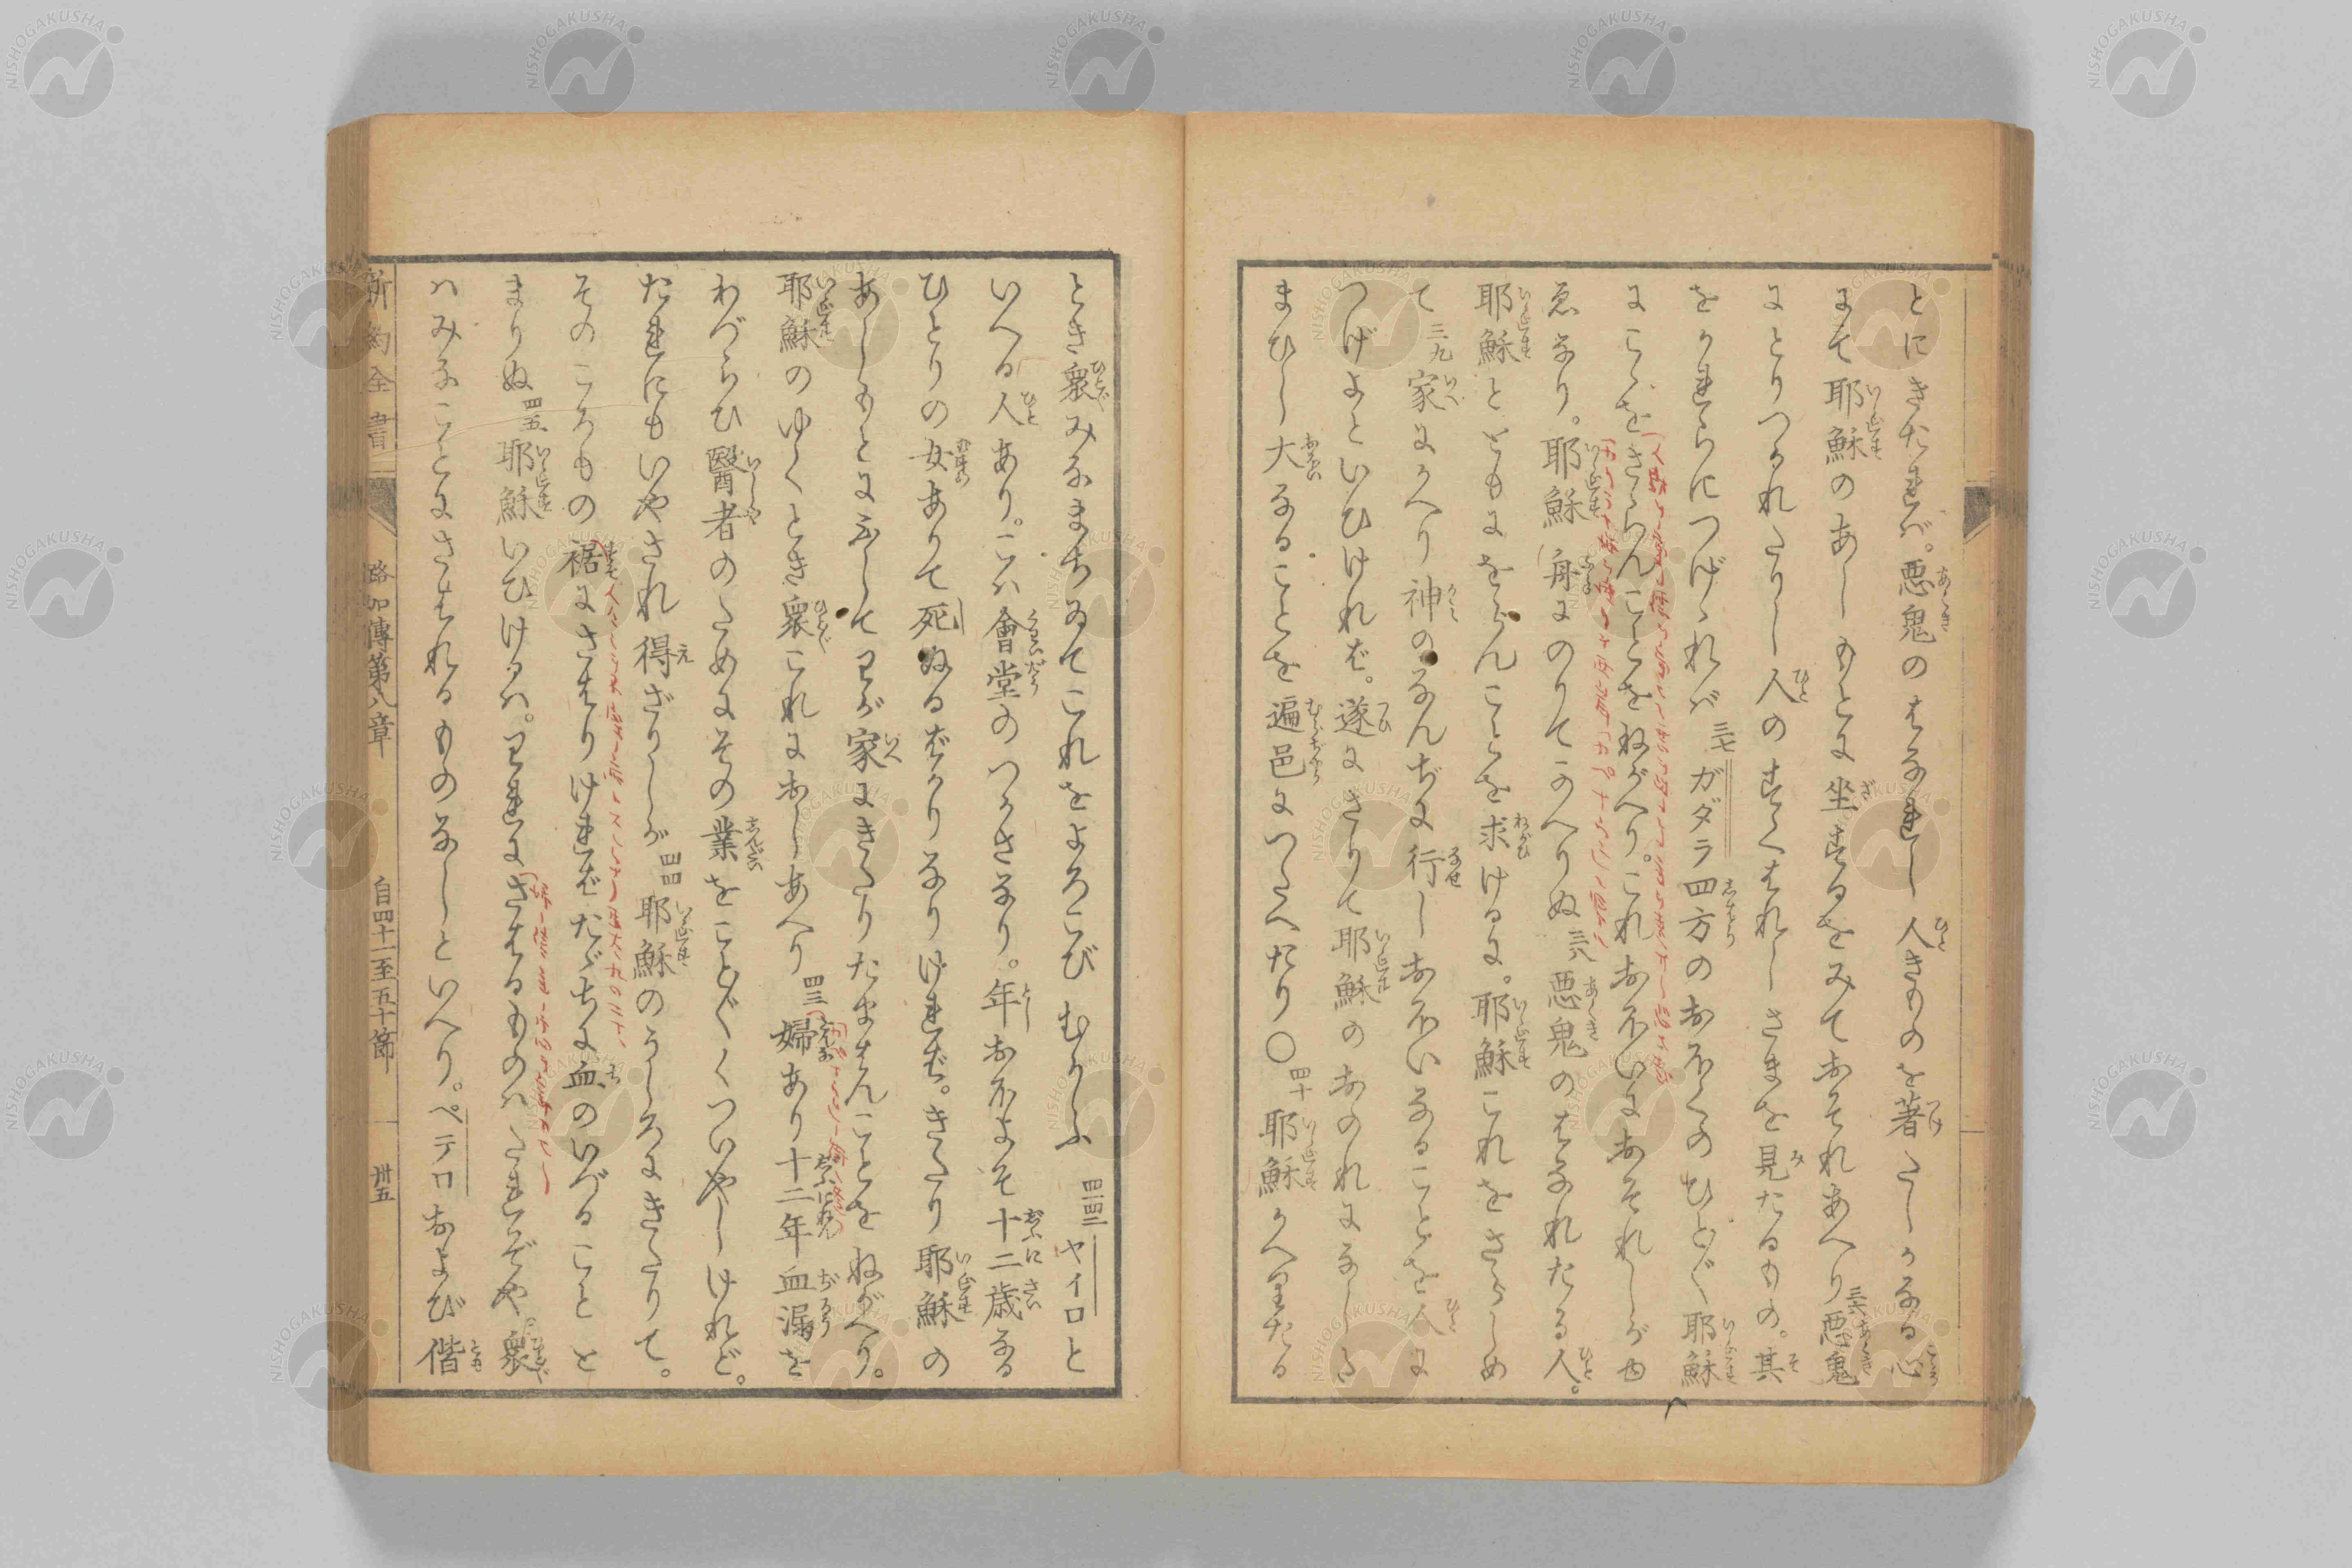 とにきたれバ。悪鬼のはなれし人きものを著たしかなる心
にて耶穌のあしもとに坐するをみておそれあへり三六悪鬼
にとりつかれたりし人のすくはれしさまを見たるもの。其
をかれらにつげゝれバ三七ガダラ四方のおほくのひとゞ耶穌
にこゝをさらんことをねがへり。これおほいにおそれしが由
ゑなり。耶穌舟にのりてかへりぬ三八悪鬼のはなれたる人。
耶穌とともにをらんことを求けるに。耶穌これをさらしめ
て三九家にかへり神のなんぢに行しおほいなることを人に
つげよといひけれバ。遂にさりて耶穌のおのれになしゝ
まひし大なることを遍邑につたへたり〇四十耶穌かへりたる
とき衆みなまちゐてこれをよろこびむかふ四一四二ヤイロと
いへる人あり。こハ會堂のつかさなり。年おほよそ十二歳なる
ひとりの女ありて死ぬるばかりなりければ。きたり耶穌の
あしもとにふしてわが家にきたりたまはんことをねがへり。
耶穌のゆくとき衆これにおしあへり四三婦あり十二年血漏を
わづらひ醫者のためにその業をことごとくつひやしけれど。
たれにもいやされ得ざりしが四四耶穌のうしろにきたりて。
そのころもの裾にさはりければたゞちに血のいづることと
まりぬ四五耶穌いひけるハ。われにさはるものハたれぞや。衆
ハみなことにさはれるものなしといへり。ペテロおよび偕
新約全書
路加傳第八章
自四十一至五十節
卅五